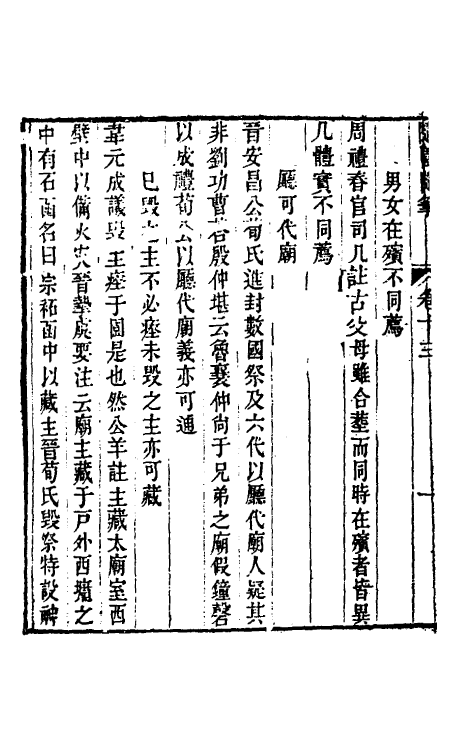 隨園隨筆
卷十三
一
男女在殯不同薦
周禮春官司几註古父母雖合塟而同時在殯者皆異
几體實不同薦
廳可代廟
晉安昌公荀氏進封數國祭及六代以廳代廟人疑其
非劉功曹答殷仲堪云魯襄仲尙于兄弟之廟假鐘磬
以成禮荀公以廳代廟義亦可通
巳毀之主不必瘞未毀之主亦可藏
韋元成議毀主瘞于園是也然公羊註主藏太廟室西
壁中以備火災晉摯虞要注云廟主藏于戸外西墉之
中有石函名曰宗祏函中以藏主晉荀氏毀祭特設神